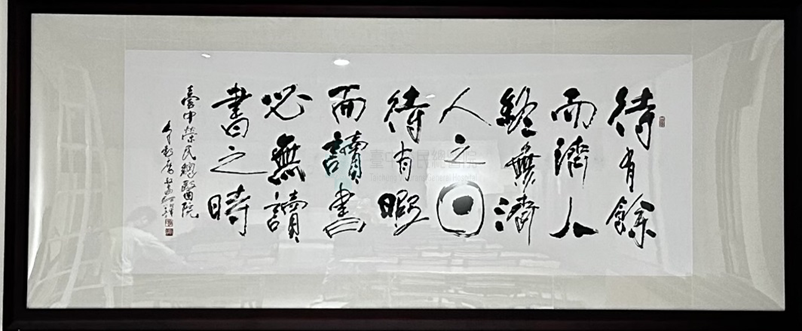 待有餘
而濟人
終無濟
人之日
待有暇
而讀書
必無讀
書之時
臺中榮民總醫院